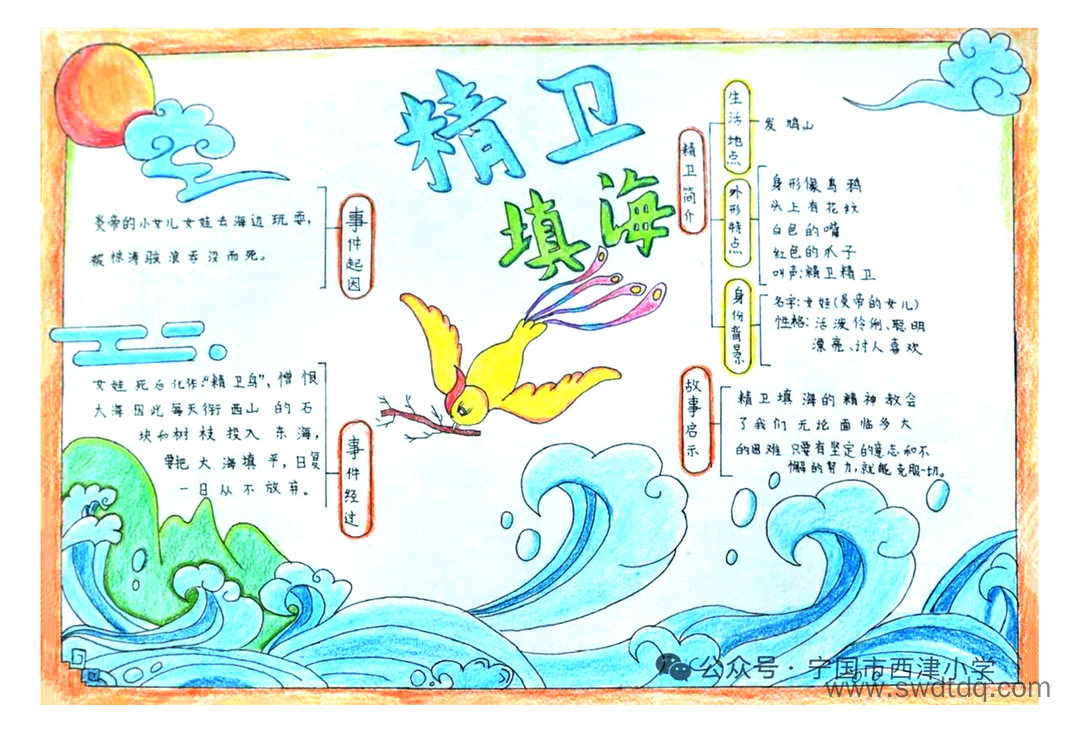 精卫
填海
事件起因
炎帝的小女儿女娃去海边玩耍,
被惊涛骇浪吞没而死。
事件经过
女娃死后化作:“精卫鸟”,憎恨
大海因此每天衔西山的石
块和树枝投入东海,
要把大海填平,日复
一日从不放弃。
精卫简介
生活地点
发鸠山
外形特点
身形像乌鸦
头上有花纹
白色的嘴
红色的爪子
叫声:精卫精卫
身份背景
名字:女娃(炎帝的女儿)
性格:活泼伶俐,聪明
漂亮、讨人喜欢
故事启示
精卫填海的精神教会
了我们无论面临多大
的困难只要有坚定的意志和不
懈的努力,就能克服一切。
公众号·宁国市西津小学
www.swdtdq.com